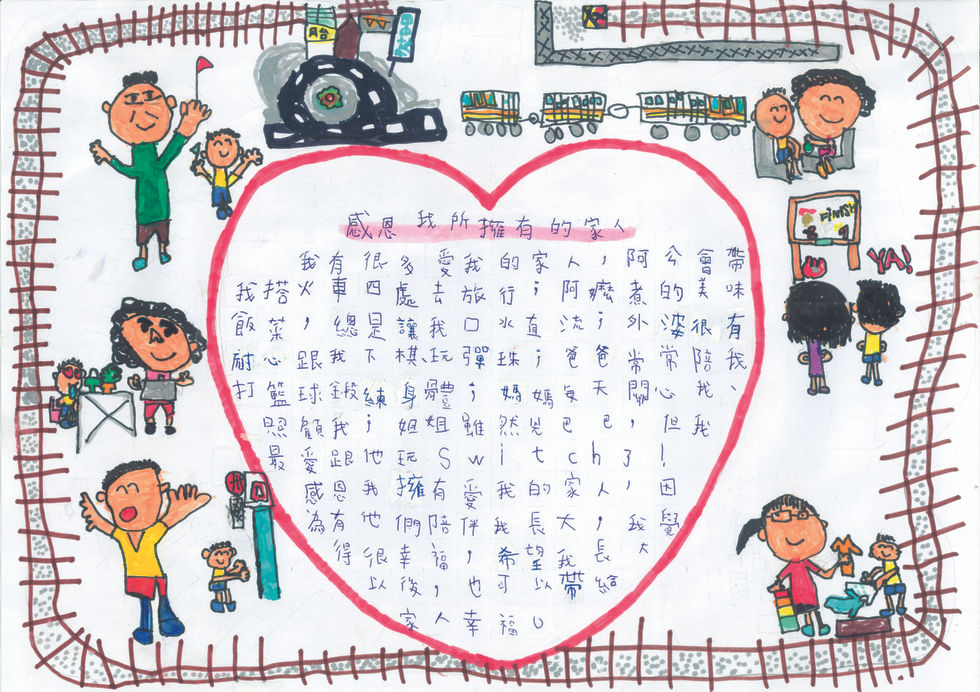 月台
感恩我所擁有的家人
我有很多愛我的家人，阿公會帶
我搭火車四處去旅行；阿嬤煮的美味
飯菜，總是讓我口水直流；外婆很有
耐心跟我下棋玩彈珠；爸爸常常陪我、
打籃球鍛練身體；媽媽每天關心我
照顧我；姐姐雖然兇巴巴，但我
最愛跟他玩Switch了！
感恩我擁有愛我的家人，因
為有他們陪伴我長大，我覺
得很幸福，希望我長大
以後，也可以帶給
家人幸福。
FINISH
YA!